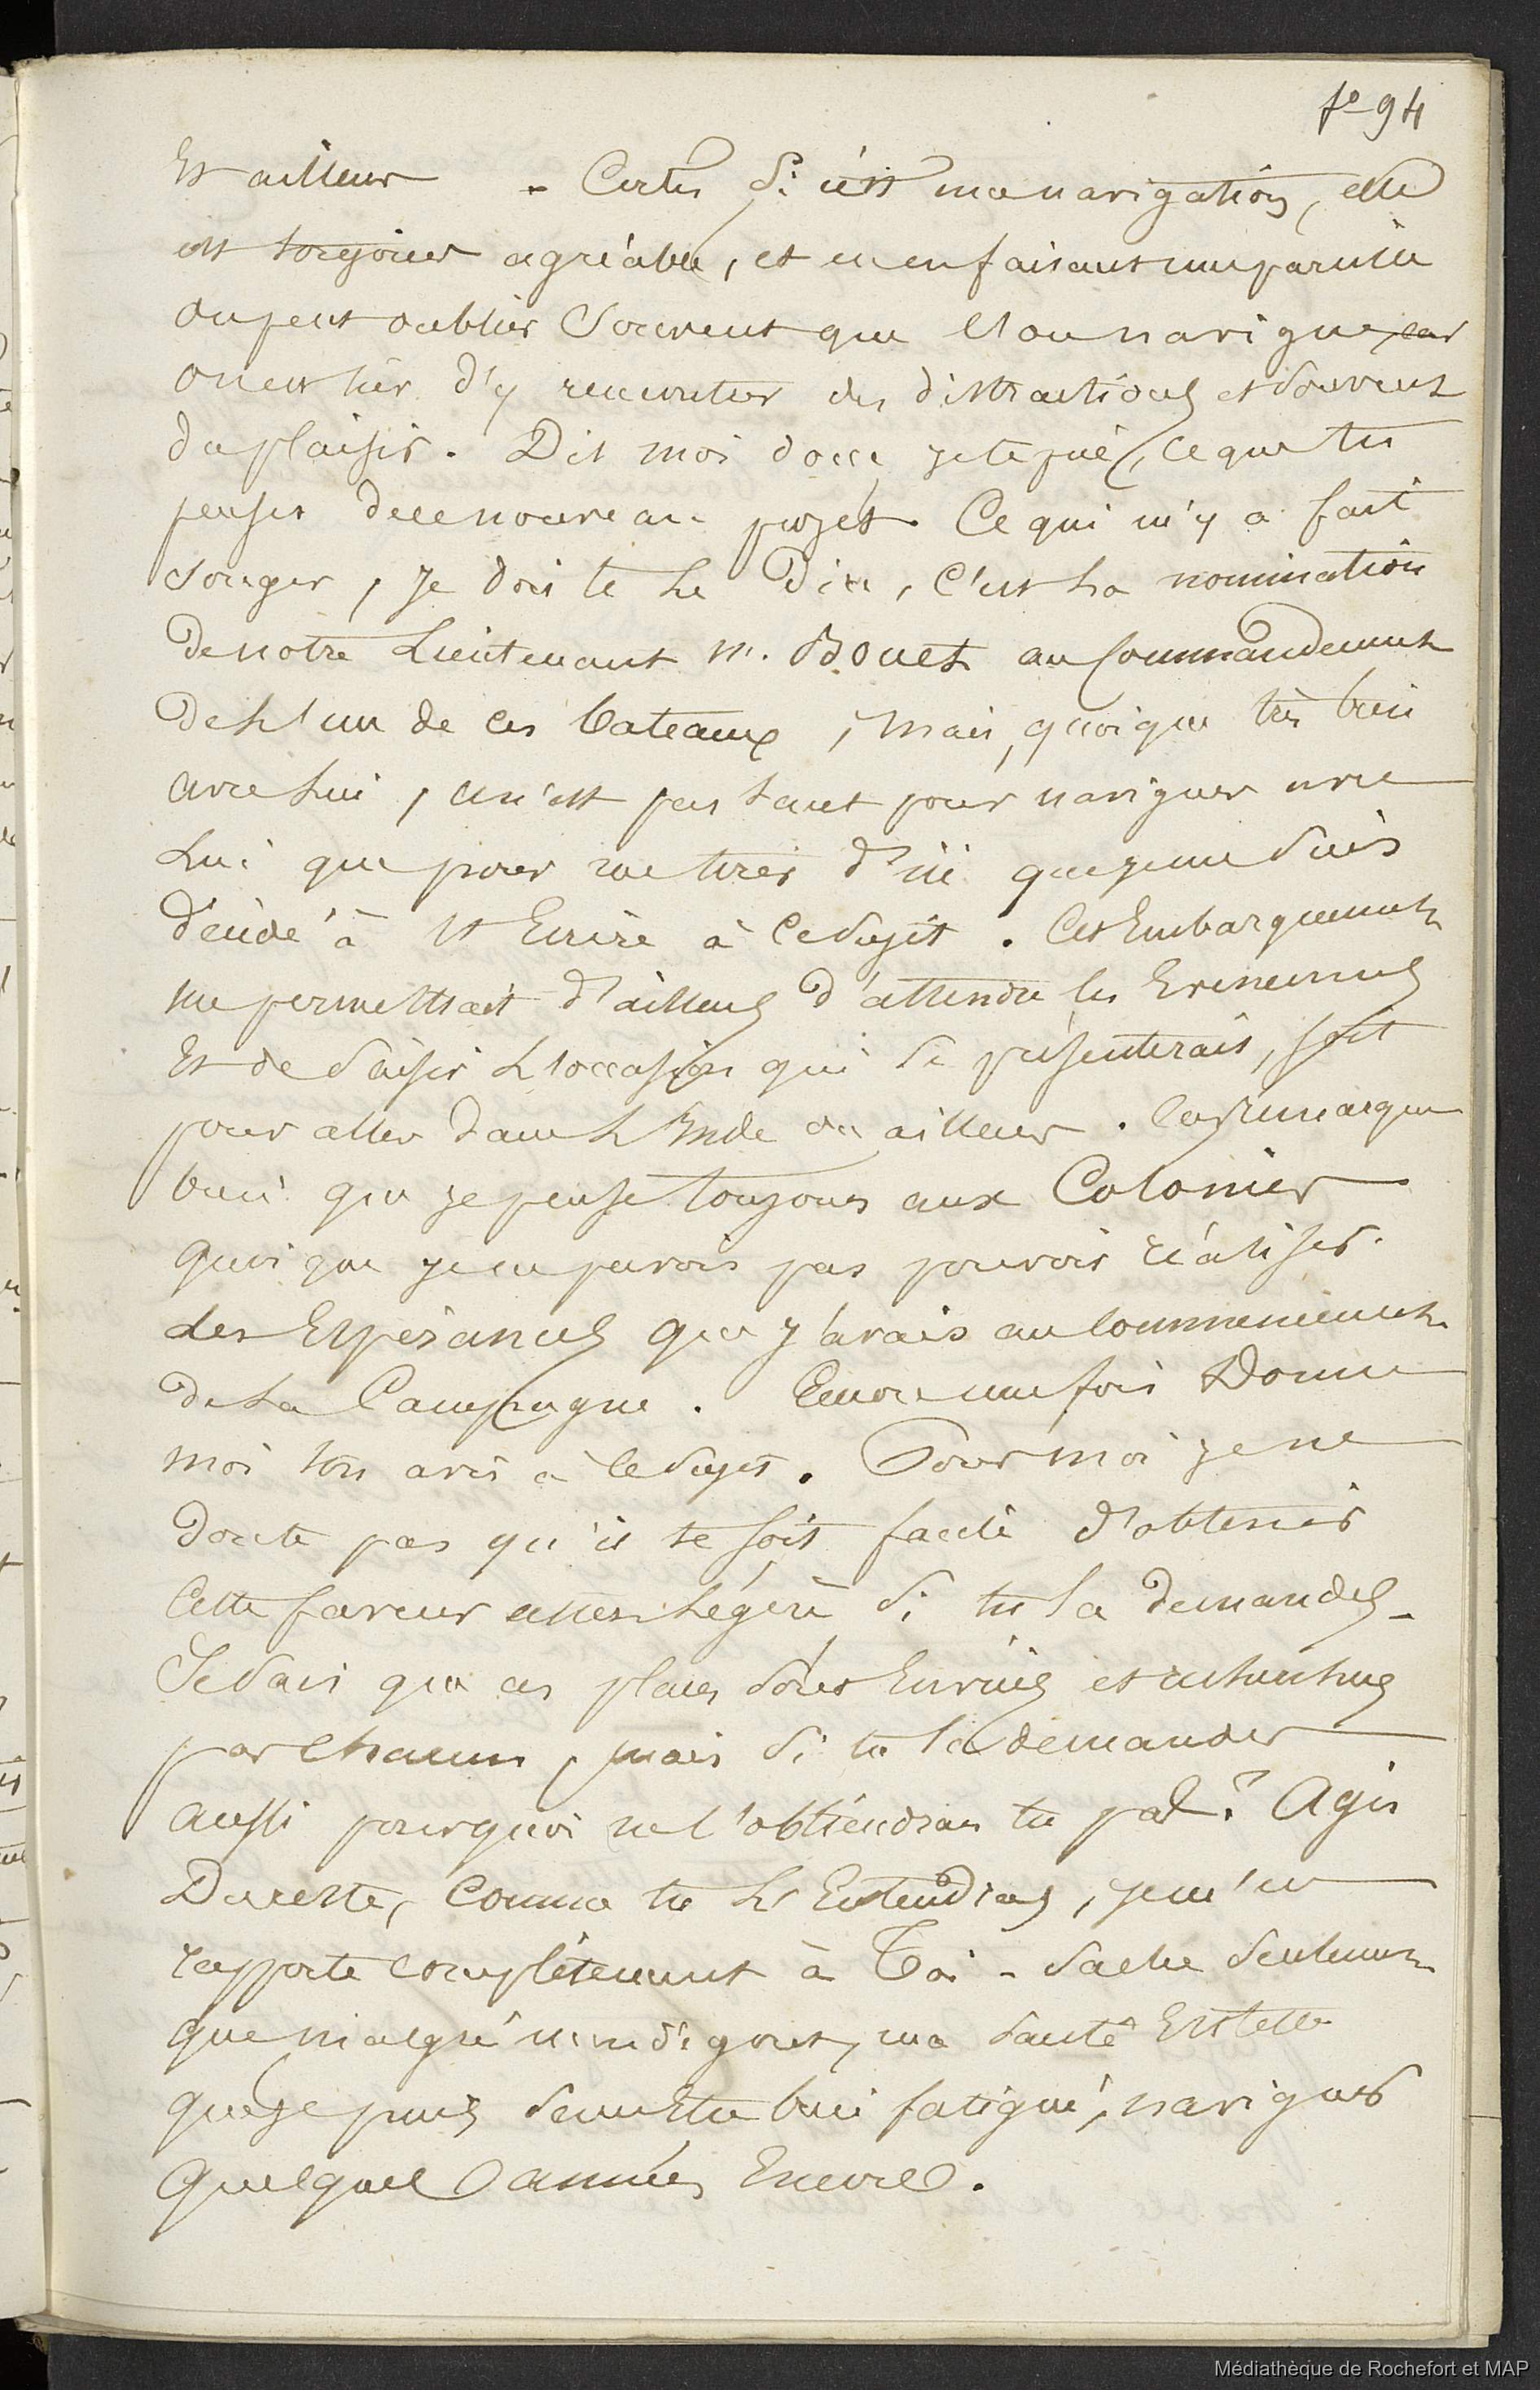 fo 94
Et ailleur - Certes si c'est une navigation, elle
est toujour agréable, et en en faisant une pareille
on peut oublier souvent que l'on navigue, car
on est sûr d'y rencontrer des distractions et souvent
du plaisir. Dis moi donc, je te prie, ce que tu
penses de ce nouveau projet. Ce qui m'y a fait
songer, je dois te le dire, c'est la nomination
de notre Lieutenant M. Bouet au Commandement
de l'un de ces bateaux, mais, quoique très bien
avec lui, ce n'est pas tant pour naviguer avec
lui que pour me tirer d'ici que je me suis
décidé à t'écrire à ce sujet. Cet Embarquement
me permettrait d'ailleurs d'attendre les Evenements
Et de saisir l'occasion qui se présenterait, soit
pour aller dans l'Inde ou ailleur. Car remarque
bien que je pense toujours aux Colonies
quoique je ne prévois pas pouvoir réaliser
les Espérances que j'avais au commencement
de la Campagne. Encore une fois Donne
moi ton avis à ce sujet. Pour moi je ne
doute pas qu'il te soit facile d'obtenir
Cette faveur assez légère si tu la demandes -
Je sais que ces places sont Enviées et recherchées
par chacun, mais si tu la demandes
aussi pourquoi ne l'obtiendrais tu pas? Agis
Du reste, Comme tu l'Entendras, je m'en
rapporte complètement à Toi - Sache seulement
que malgré mon dégout, ma santé Est telle
que je puis sans être bien fatigué, naviguer
quelques années Encore.
Médiathèque de Rochefort et MAP